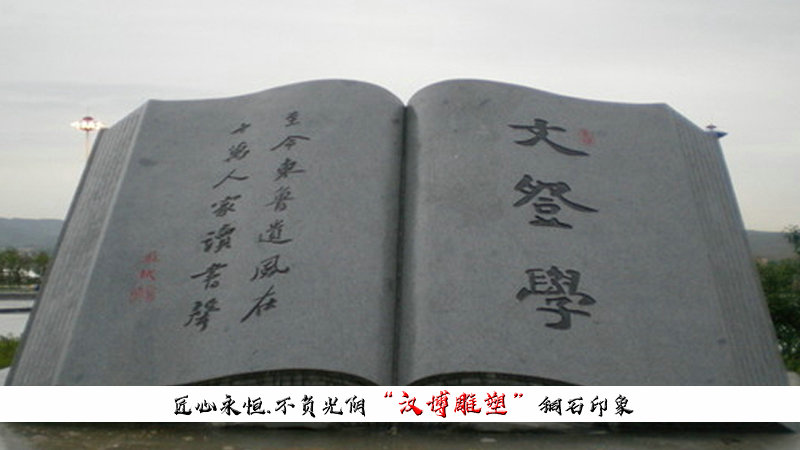 文登學
至今東魯遺風在
十萬人家讀書聲
匠心永恒.不负光阴“汉博雕塑”铜石印象